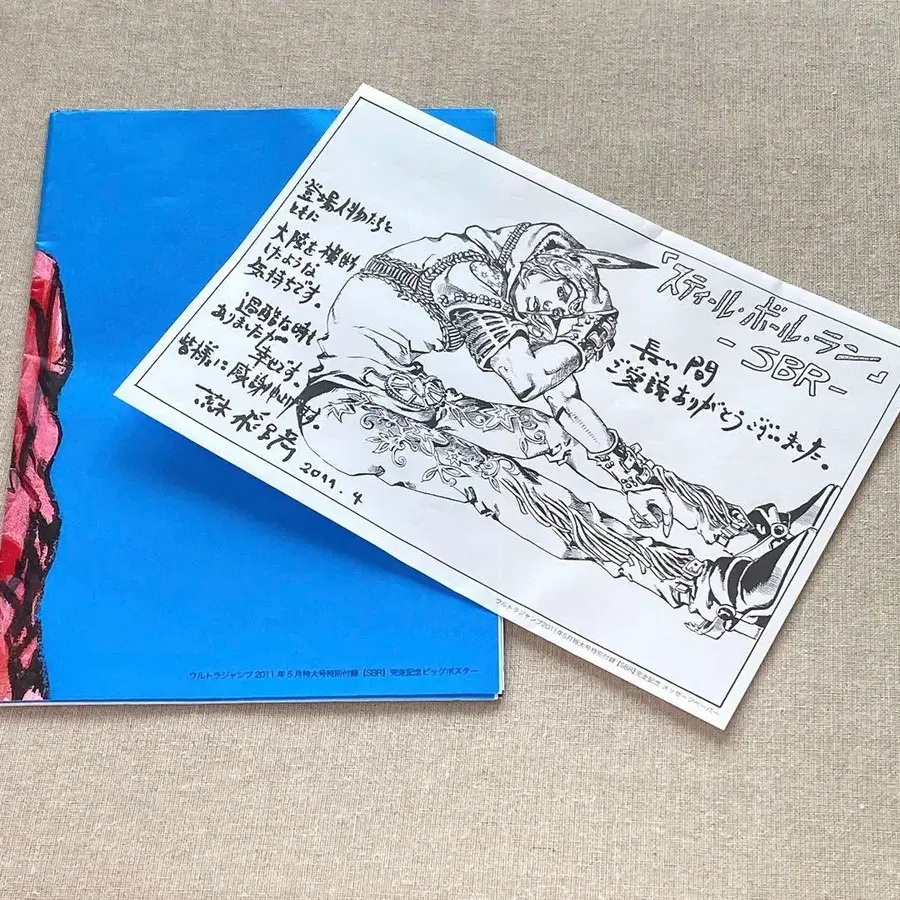 『スティール・ボール・ラン』
-SBR-
長い間
ご愛読ありがとうございました。
登場人物たちと
ともに
大陸を横断
したような
気持ちです。
過酷な時も
ありましたが
幸せです。
皆様に感謝
荒木飛呂彦
2011.4
ウルトラジャンプ2011年5月特大号特別付録【SBR】完走記念 メッセージペーパー
ウルトラジャンプ 2011年5月特大号特別付録【SBR】完走記念ビッグポスター